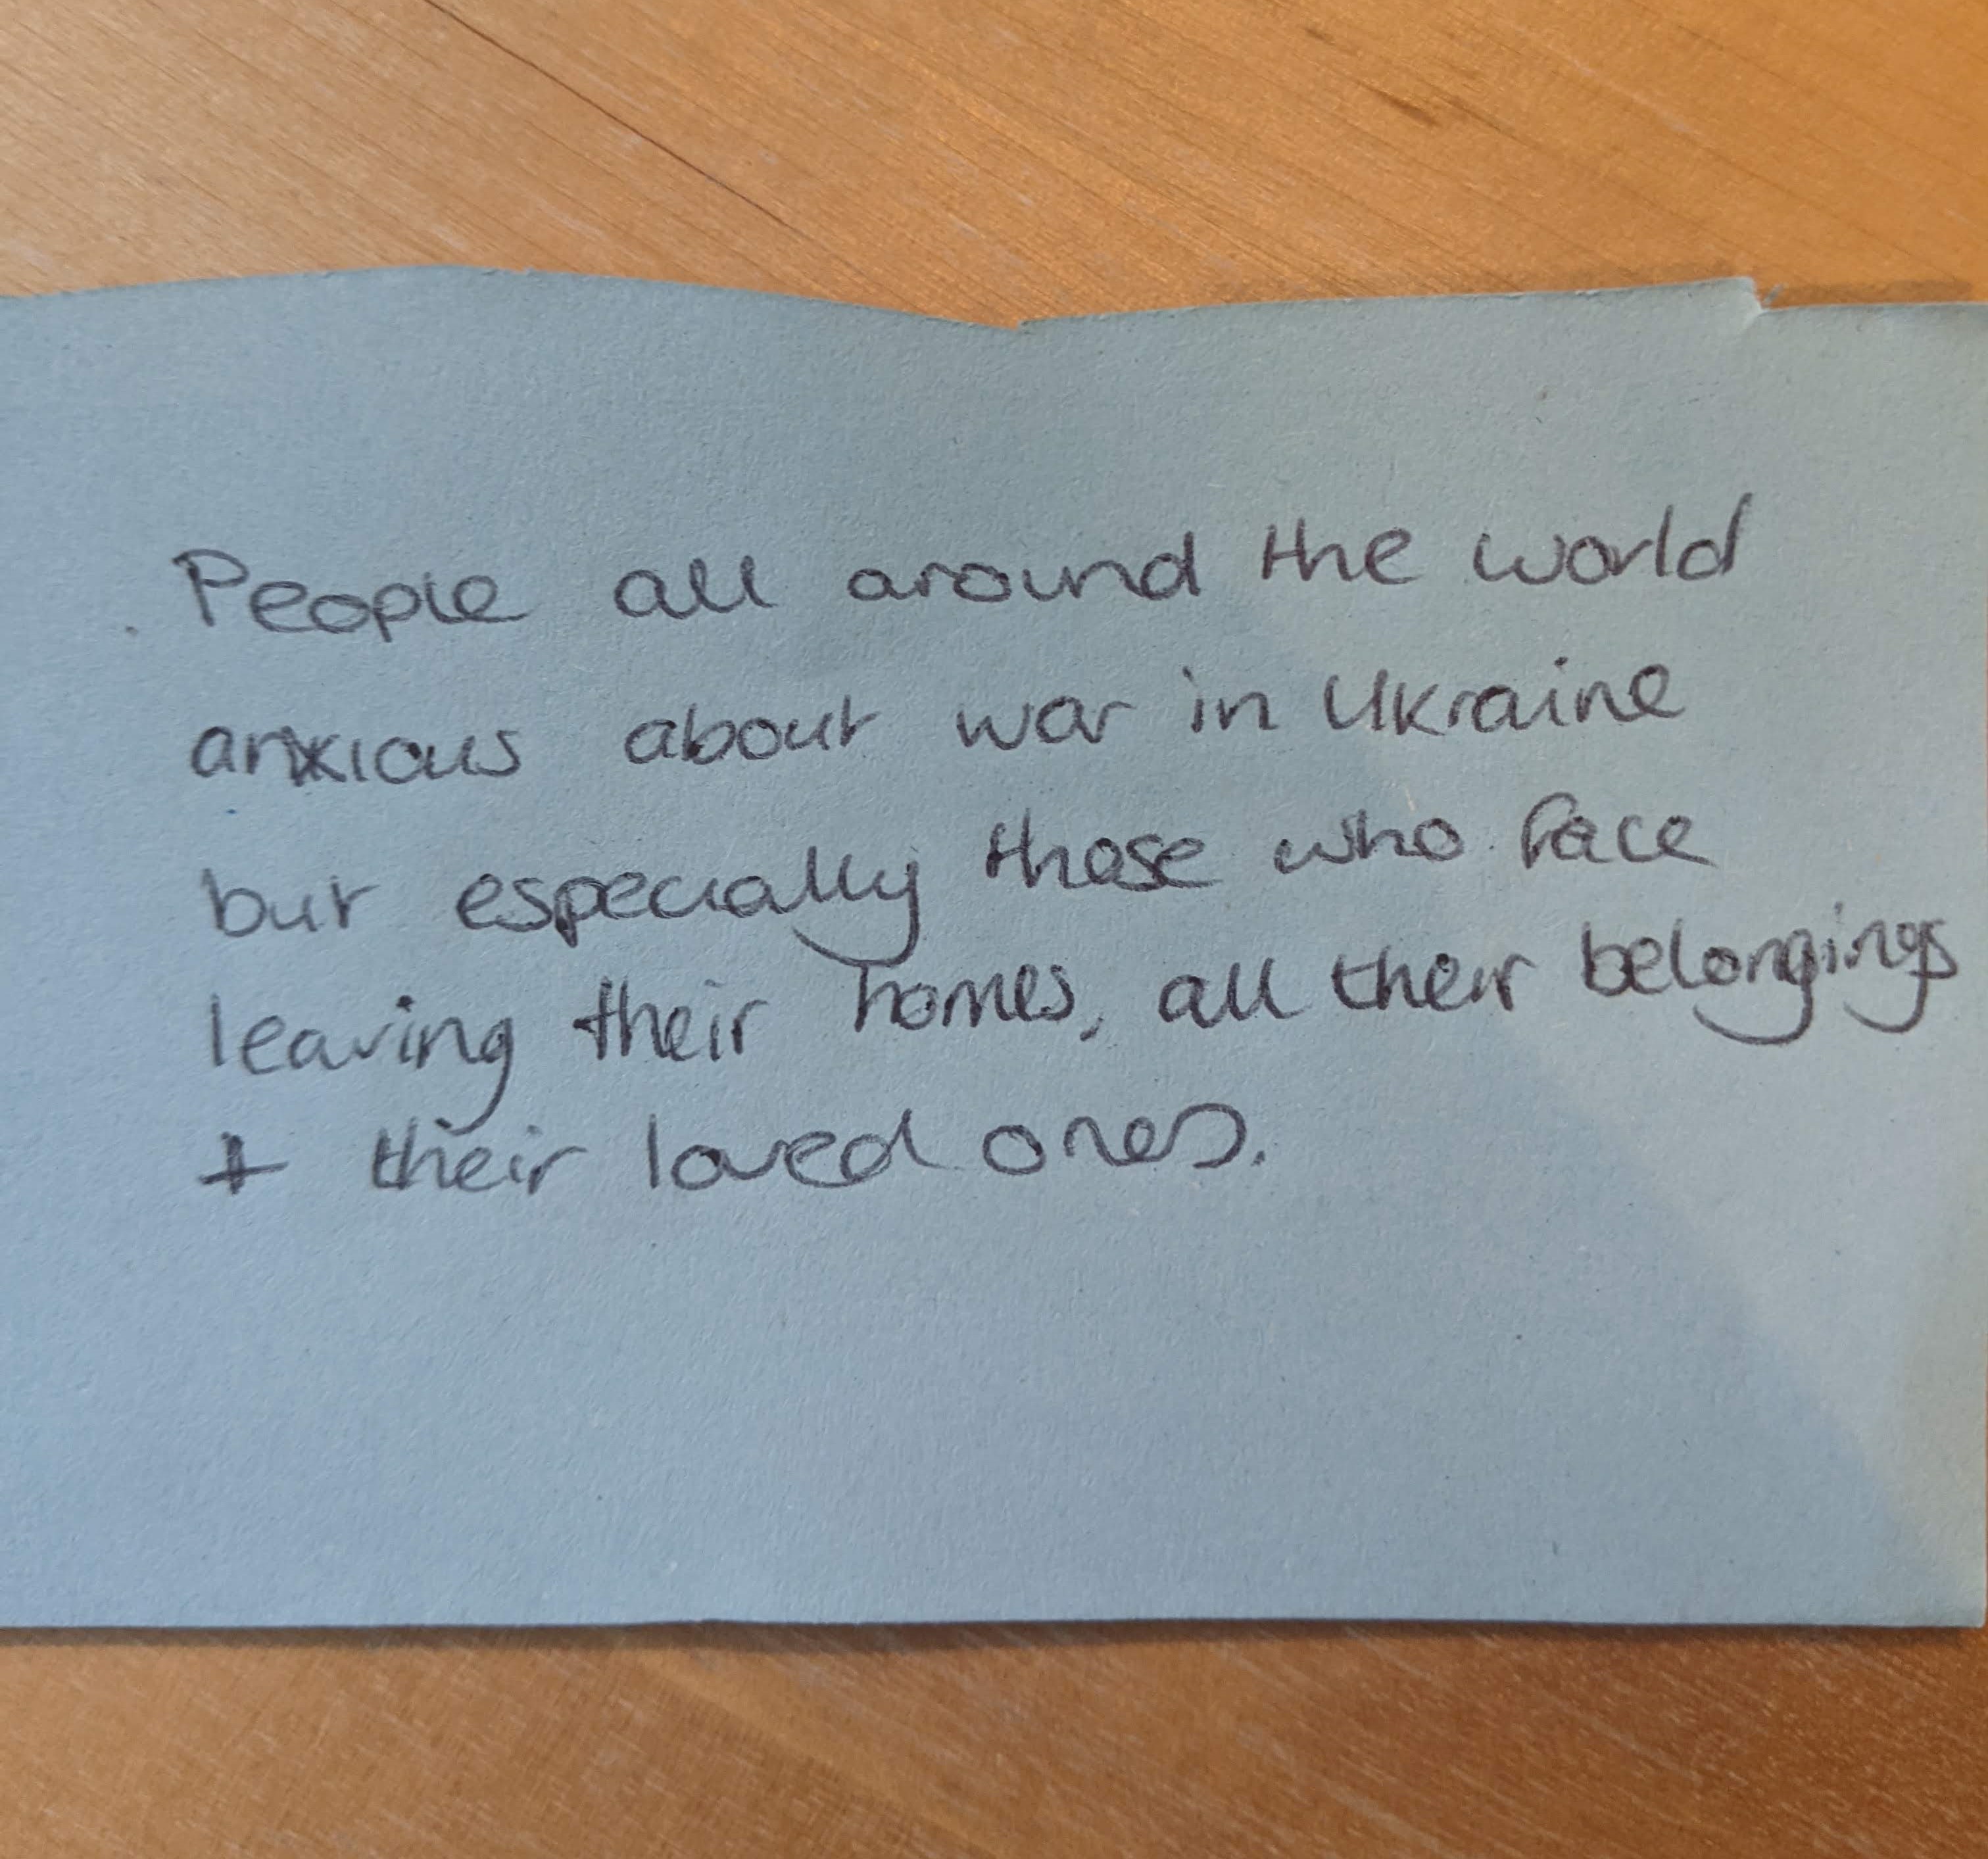 People all around the world
anxious about war in Ukraine
but especially those who face
leaving their homes, all their belongings
+ their loved ones.